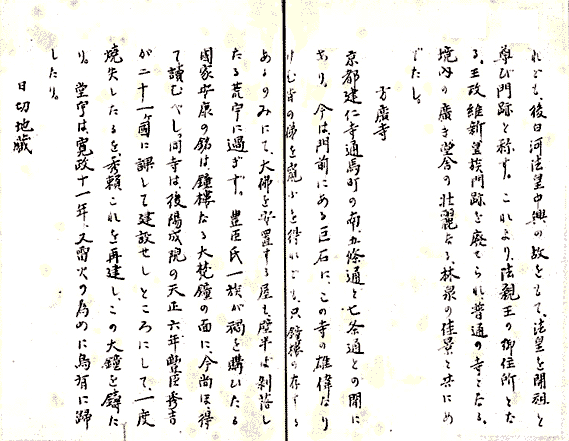 れども、後白河法皇中興の故をもて、法皇を開祖と
尊び門跡と称す。これより、法親王の御住所とな
る。王政維新皇族門跡を廃せられ、普通の寺となる。
境内の廣き堂舎の壮麗なる、林泉の佳景と共にめ
でたし。
方廣寺
京都建仁寺通馬町の南、五條通と七条通との間に
あり。今は門前にある巨石に、この寺の雄偉なり
けむ昔の俤を窺ふを得れども、只鐘楼の存する
あるのみにて、大佛を安置する屋も壁半ば剥落し
たる荒宇に過ぎず。豊臣氏一族が禍を購ひたる
國家安康の銘は鐘樓なる大梵鐘の面に、今尚ほ得
て讀むべし。同寺は後陽成院の天正六年、豊臣秀吉、
が二十一箇國に課して建設せしところにして、一度
燒失したるを秀頼これを再建し、この大鐘を鋳た
り。堂宇は寛政十一年、又雷火の為めに烏有に歸
したり。
日切地蔵